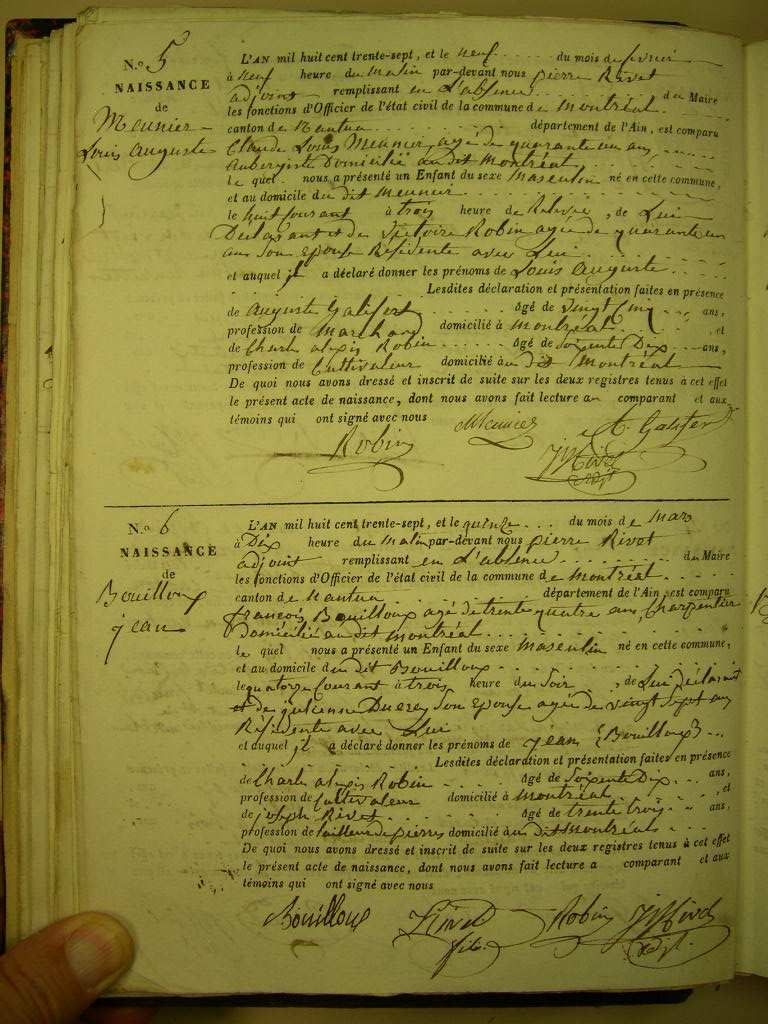 N.o 5
NAISSANCE
de
Meunier
Louis auguste
L'AN mil huit cent trente-sept, et le neuf du mois de fevrier
à neuf heure du Matin par-devant nous pierre Rivet
adjoint remplissant en L'absence du Maire
les fonctions d'Officier de l'état civil de la commune de Montréal
canton de Nantua département de l'Ain, est comparu
Claude Louis Meunier, agé de quarante un ans,
aubergiste Domicilié au dit Montréal
le quel nous a présenté un Enfant du sexe Masculin né en cette commune,
et au domicile du dit Meunier
le huit Courant à trois heure de Relevée, de Lui
Declarant et de Victoire Robin agée de quarante un
ans Son epouse Résidente avec Lui
et auquel il a déclaré donner les prénoms de Louis auguste
Lesdites déclaration et présentation faites en présence
de auguste Galifert âgé de vingt Cinq ans,
profession de Marchand domicilié à Montréal et
de Charle alexis Robin âgé de Soixente Dix ans,
profession de Cultivateur domicilié au dit Montréal
De quoi nous avons dressé et inscrit de suite sur les deux registres tenus à cet effet
le présent acte de naissance, dont nous avons fait lecture au comparant et aux
témoins qui ont signé avec nous
Robin Meunier A. Galifert
Rivet
adjt
N.o 6
NAISSANCE
de
Bouilloux
jean
L'AN mil huit cent trente-sept, et le quinze du mois de Mars
à Dix heure du Matin par-devant nous pierre Rivet
adjoint remplissant en L'absence du Maire
les fonctions d'Officier de l'état civil de la commune de Montréal
canton de Nantua département de l'Ain, est comparu
françois Bouilloux agé de trente quatre ans, Charpentier
Domicilié au dit Montréal
le quel nous a présenté un Enfant du sexe Masculin né en cette commune,
et au domicile du dit Bouilloux
le quatorze Courant à trois heure du Soir, de Lui Déclarant
et de julienne Ducrey Son epouse agée de vingt Sept ans
Résidente avec Lui
et auquel il a déclaré donner les prénoms de jean (Bouilloux)
Lesdites déclaration et présentation faites en présence
de Charle alexis Robin âgé de Soixente Dix ans,
profession de Cultivateur domicilié à Montréal et
de joseph Rivet âgé de trente trois ans,
profession de tailleur de pierres domicilié au dit Montréal
De quoi nous avons dressé et inscrit de suite sur les deux registres tenus à cet effet
le présent acte de naissance, dont nous avons fait lecture a comparant et aux
témoins qui ont signé avec nous
Bouilloux Rivet Robin Rivet
fils adjt.